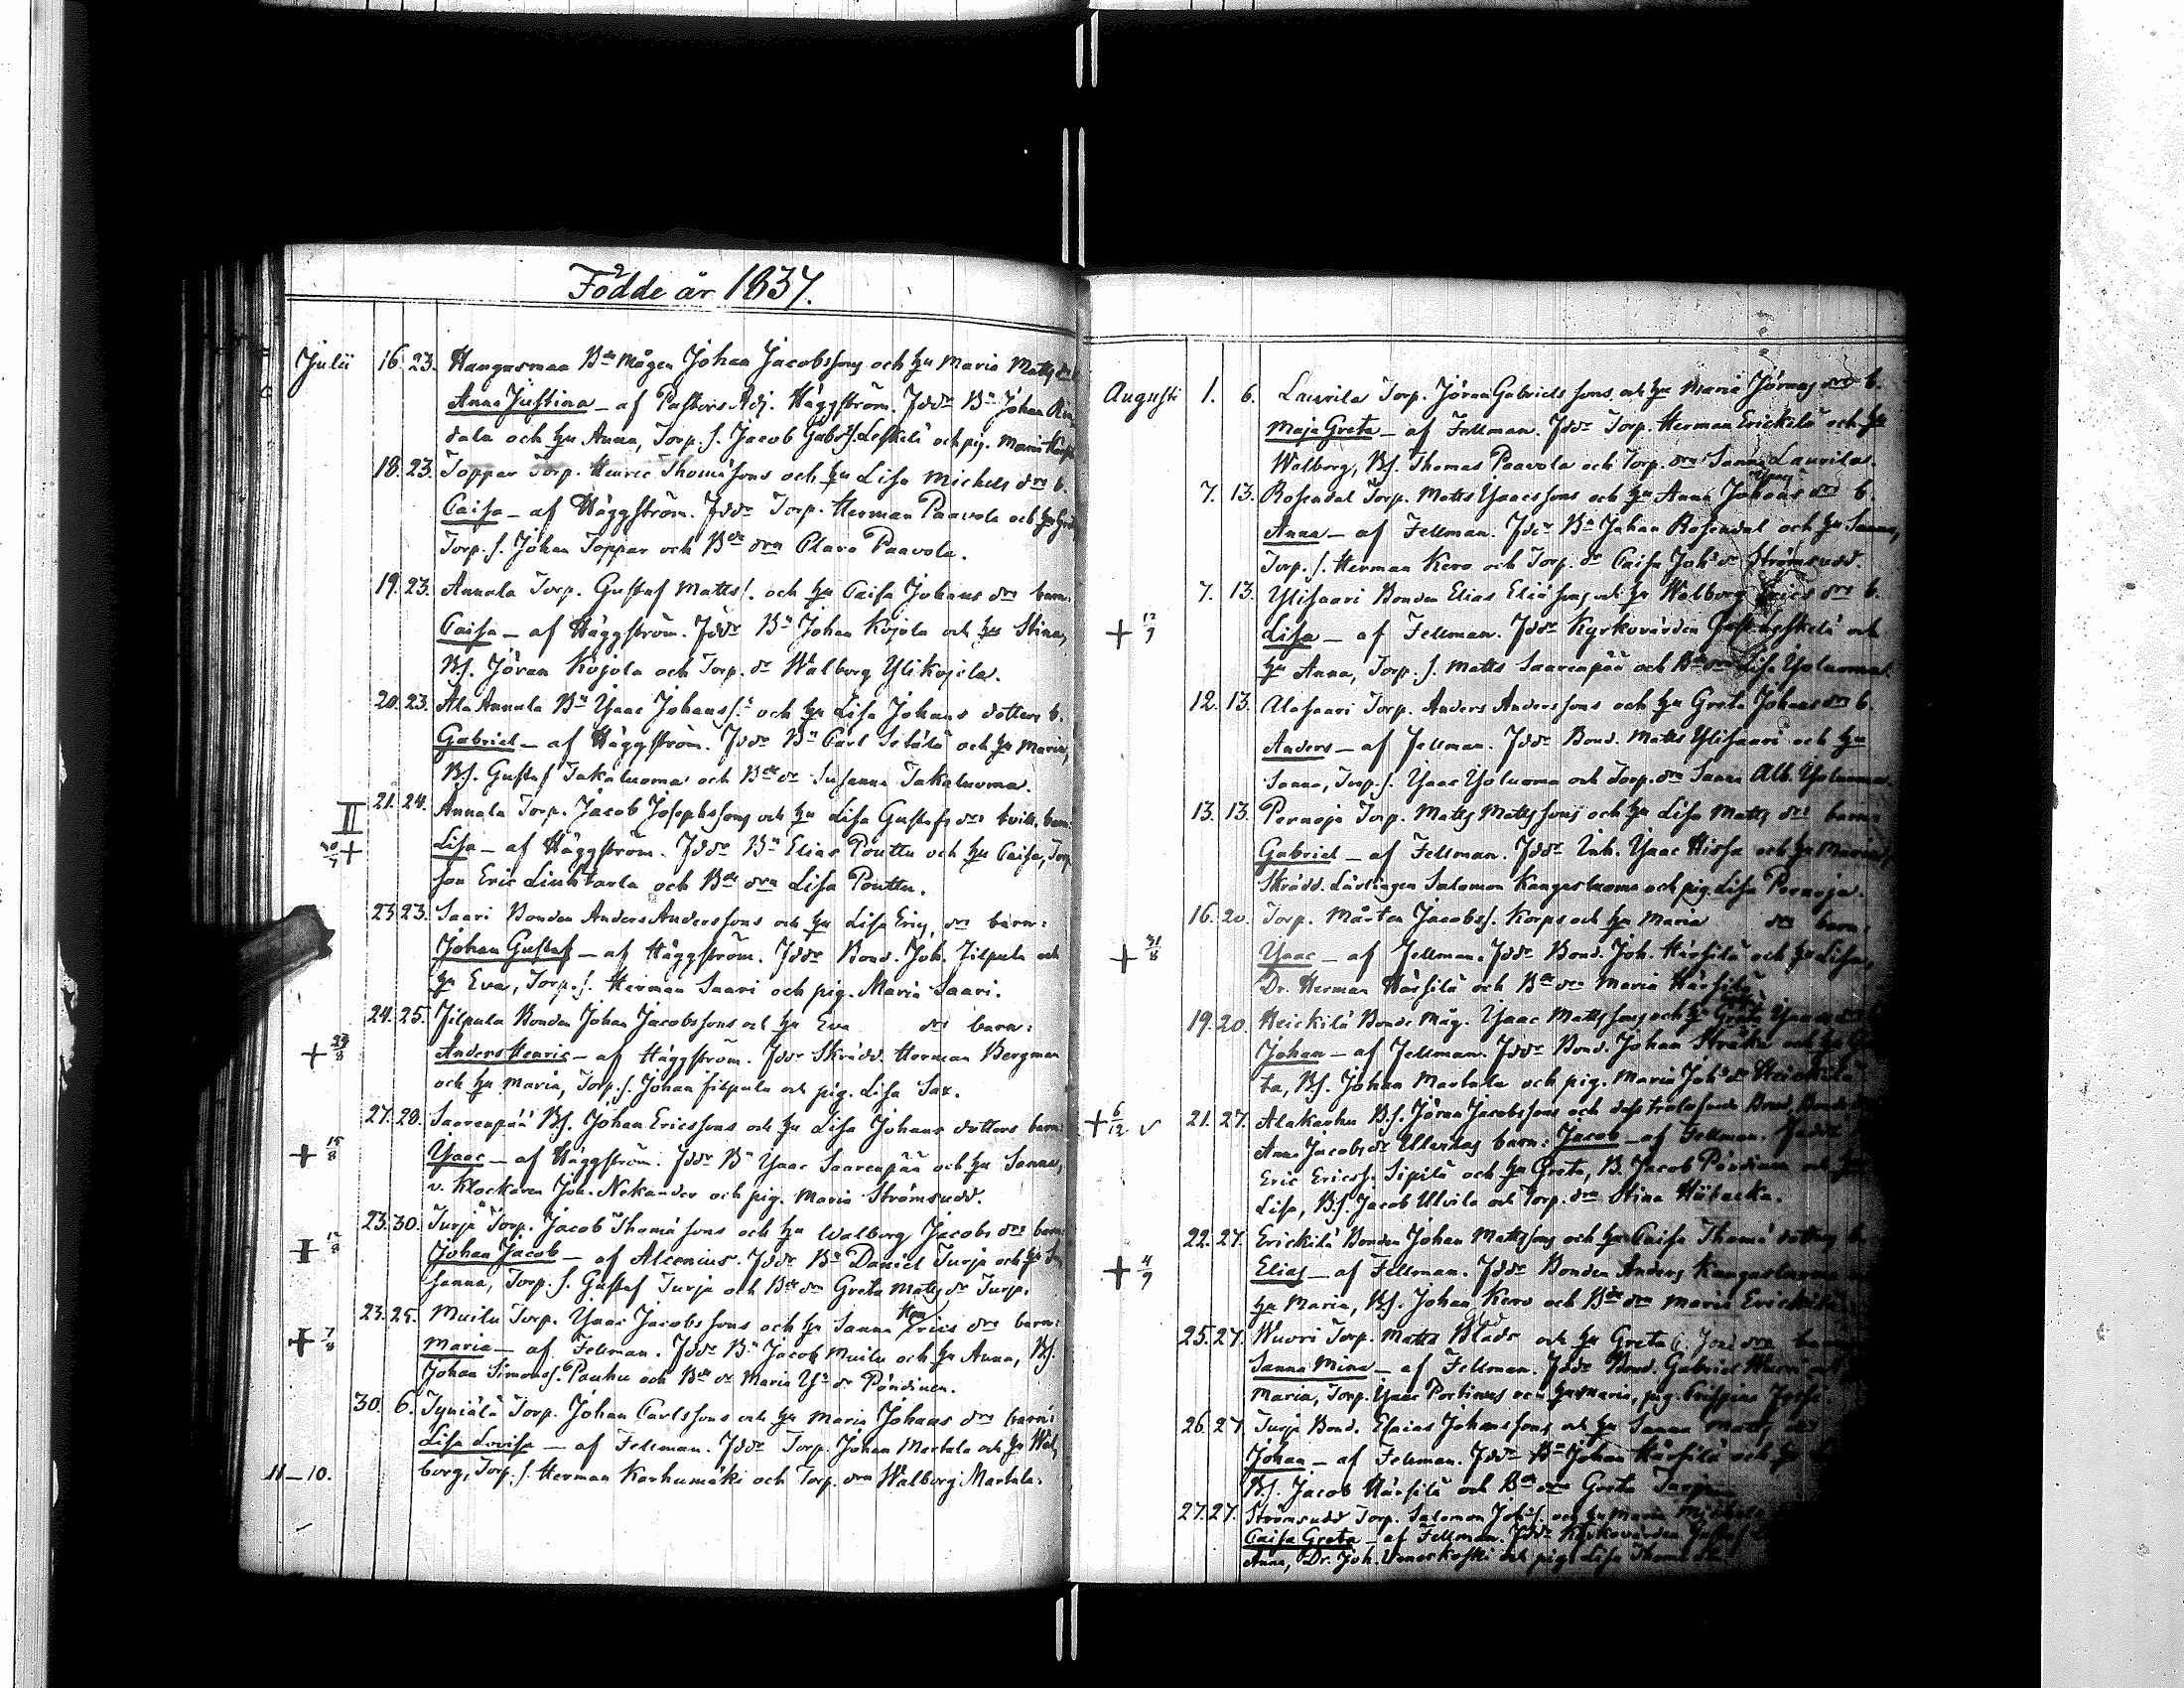 Födde år 1837.
Julii 16. 23. Kangasmaa Bde mågen Johan Jacobssons och hu Maria Matts
Anna Justina – af Pastors Adj. Häggström. Fddr Bn Johan
dala och hu Anna, Torp. s. Jacob Gabr. s. Leskelä och pig. Maria
18. 23. Toppar Torp. Henric Thomæ sons och hu Lisa Michels drs b.
Caisa – af Häggström. Fddr Torp. Herman Paavola och hu
Torp. s. Johan Toppar och Bde drn Clara Paavola.
19. 23. Annala Torp. Gustaf Matts s. och hu Caisa Johans drs barn:
Caisa – af Häggström. Fddr Bn Johan Kojola och hu Stina,
Bs. Jöran Kojola och Torp. dr Walborg Ylikojola.
20. 23. Ala Annala Bn Isaac Johans s. och hu Lisa Johans dotters b.
Gabriel – af Häggström. Fddr Bn Carl Setälä och hu Maria,
Bs. Gustaf Takaluoma och Bde dr Susanna Takaluoma.
II 21. 24. Annala Torp. Jacob Josephssons och hu Lisa Gustafs drs tvill. barn:
+ Lisa – af Häggström. Fddr Bn Elias Pouttu och hu Caisa, Torp.
son Eric Liuhtarla och Bde drn Lisa Pouttu.
23. 23. Saari Bonden Anders Anderssons och hu Lisa Erics drs barn:
Johan Gustaf – af Häggström. Fddr Bond. Joh. Filpula och
hu Eva, Torp. s. Herman Saari och pig. Maria Saari.
24. 25. Filpula Bonden Johan Jacobssons och hu Eva drs barn:
+ 8 Anders Henric – af Häggström. Fddr Skrädd. Herman Bergman
och hu Maria, Torp. s. Johan Filpula och pig. Lisa Sax.
27. 28. Saarenpää Bs. Johan Ericssons och hu Lisa Johans dotters barn:
+ 15/8 Isaac – af Häggström. Fddr Bn Isaac Saarenpää och hu Sanna,
v. Klockaren Joh. Nekander och pig. Maria Strömsudd.
23. 30. Turja Torp. Jacob Thomæ sons och hu Walborg Jacobs drs barn:
+ 12/8 Johan Jacob – af Alcenius. Fddr Bn Daniel Turja och hu
sanna, Torp. s. Gustaf Turja och Bde drn Greta Matts dr Turja.
23. 25. Muilu Torp. Isaac Jacobssons och hu Sanna Erics drs barn:
+ 7/8 Maria – af Fellman. Fddr Bn Jacob Muilu och hu Anna, Bs.
Johan Simons s. Pauhu och Bde dr Maria Is dr Pöndinen.
30. 6. Tyniälä Torp. Johan Carlssons och hu Maria Johans drs barn:
Lisa Lovisa – af Fellman. Fddr Torp. Johan Martala och hu Wal
11–10. borg, Torp. s. Herman Karhumäki och Torp. drn Walborg Martala.
Augusti 1. 6. Laurila Torp. Jöran Gabriels sons och hu Maria Jörans drs b.
Maja Greta – af Fellman. Fddr Torp. Herman Erickilä och hu
Walborg, Bs. Thomas Paavola och Torp. drn Sanna Laurila.
7. 13. Rosendal Torp. Matts Isaacssons och hu Anna Johans drs b.
Anna – af Fellman. Fddr Bn Johan Rosendal och hu Sanna,
Torp. s. Herman Kero och Torp. dr Caisa Joh. dr Strömsudd.
7. 13. Ylisaari Bonden Elias Eliæ sons och hu Walborg Erics drs b.
+ 12/9 Lisa – af Fellman. Fddr Kyrkovärden och
hu Anna, Torp. s. Matts Saarenpää och Bde drn Lisa Yoluoma.
12. 13. Alasaari Torp. Anders Anderssons och hu Greta Johans drs b.
Anders – af Fellman. Fddr Bond. Matts Ylisaari och hu
Sanna, Torp. s. Isaac Yoluoma och Torp. drn Sanna Alb. Yoluoma.
13. 13. Pernoja Torp. Matts Mattssons och hu Lisa Matts drs barn:
Gabriel – af Fellman. Fddr Inh. Isaac Hissa och hu Maria,
Skrädd. Lärlingen Salomon Kangasluoma och pig. Lisa Pernoja.
16. 20. Torp. Mårten Jacobs s. Korps och hu Maria drs barn:
+ 31/8 Isaac – af Fellman. Fddr Bond. Joh. Härsilä och hu Lisa,
Dr. Herman Härsilä och Bde drn Maria Härsilä.
19. 20. Heickilä Bonde Måg. Isaac Mattssons och hu Greta Isaacs
Johan – af Fellman. Fddr Bond. Johan Stråka och hu
ta, Bs. Johan Martala och pig. Maria Joh. dr Heickilä
+ 6/12 v 21. 27. Alakarhu Bs. Jöran Jacobssons och dess trolofvade
Anna Jacobs dr barn: Jacob – af Fellman. Fddr
Eric Erics s. Sipilä och hu Greta, B. Jacob Pöndinen och hu
Lisa, Bs. Jacob Ulvila och Torp. drn Stina Hübacka.
22. 27. Erickilä Bonden Johan Mattssons och hu Caisa Thomæ dotters b.
+ 4/9 Elias – af Fellman. Fddr Bonden Anders Kangasluoma
hu Maria, Bs. Johan Kero och Bde drn Maria Erickilä
25. 27. Wuori Torp. Matts Blads och hu Greta
Sanna Mina – af Fellman. Fddr Bond. Gabriel Wuori
Maria, Torp. Isaac Portinus och hu Maria, pig.
26. 27. Turja Bond. Esaias Johanssons och hu Sanna Matts drs
Johan – af Fellman. Fddr Bn Johan Härsilä och hu
Bs. Jacob Härsilä och Bde drn Greta Turja
27. 27. Strömsudd Torp. Salomon Joh. s. och hu Maria
Caisa Greta – af Fellman. Fddr Kyrkovärden Gustaf
Anna, Dr. Joh. och pig. Lisa